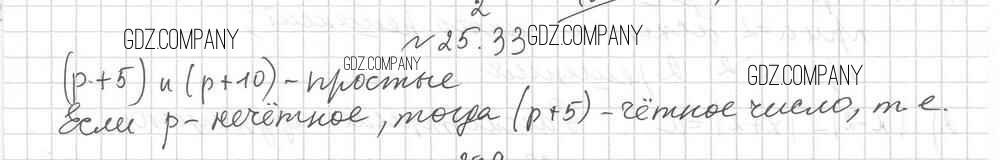 2
GDZ.COMPANY
№25.33 GDZ.COMPANY
GDZ.COMPANY
(p+5) и (p+10) - простые
GDZ.COMPANY
Если p - нечётное, тогда (p+5) - чётное число, т. е.